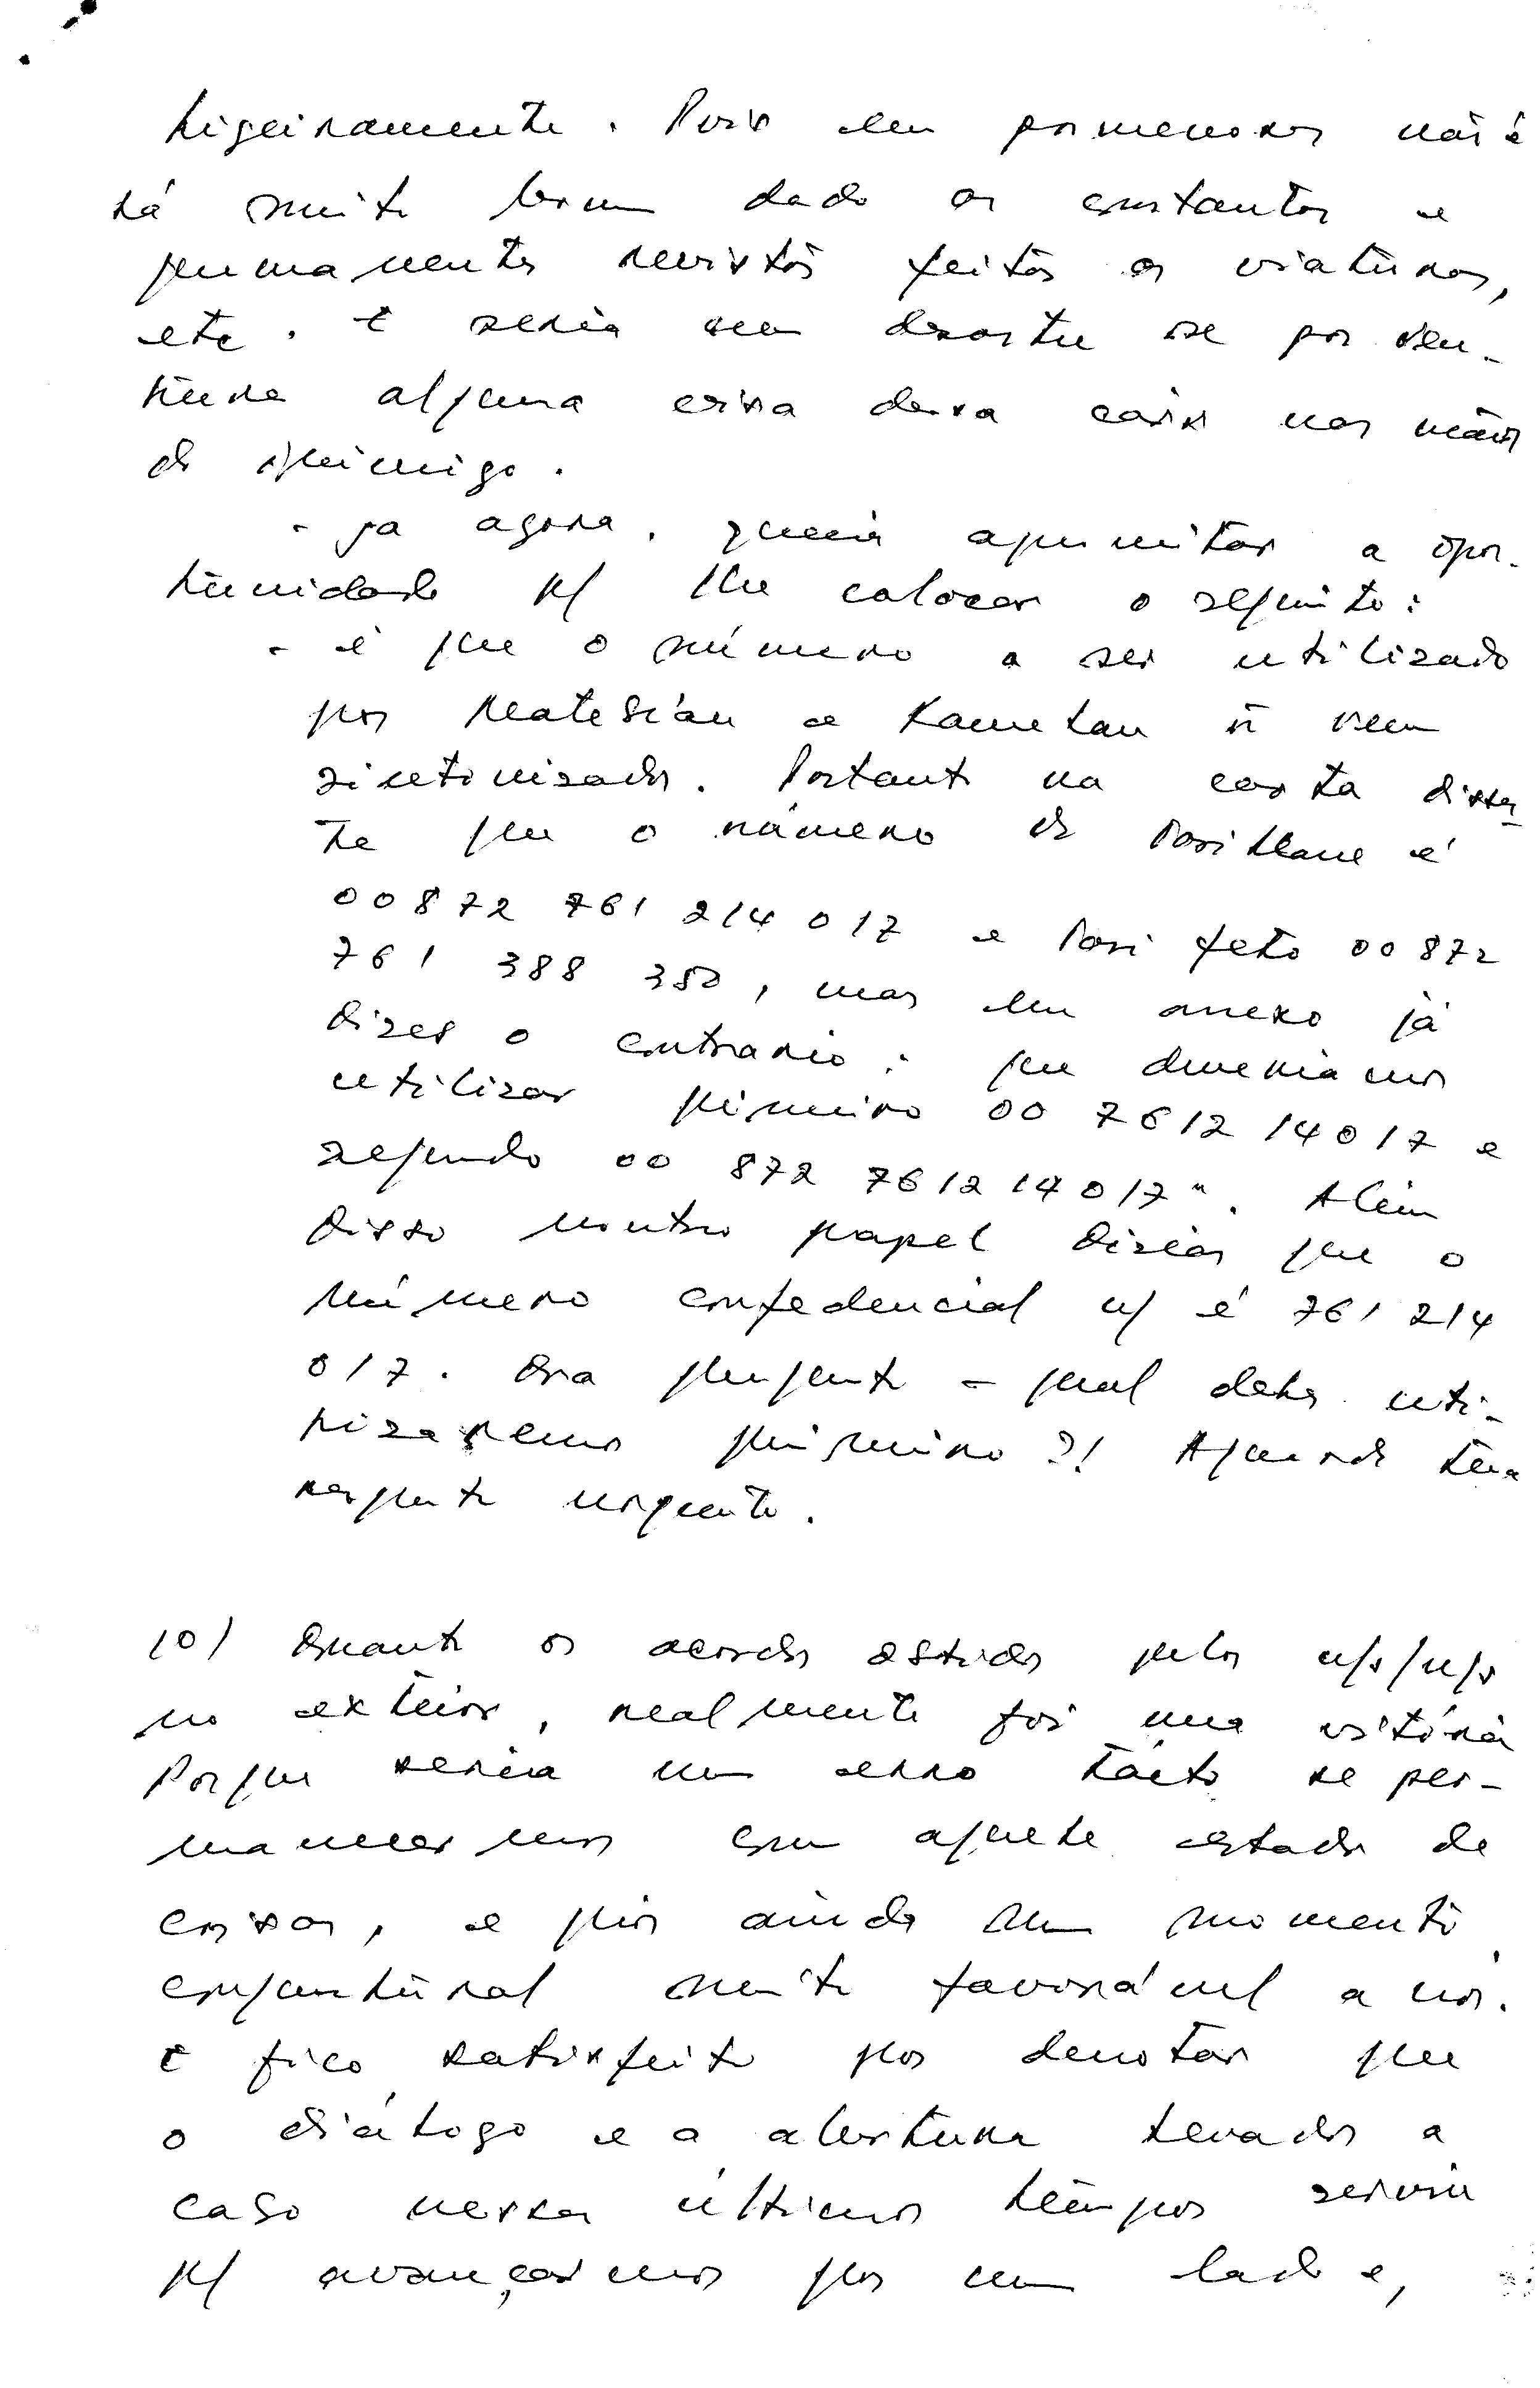 ligeiramente. Pois em pormenores não é
lá muito bom dado as constantes e
permanentes revistas feitas as viaturas,
etc. E seria um desastre se por ven-
tura alguma coisa dessa cair nas mãos
do inimigo.
- já agora, queria aproveitar a opor-
tunidade p/ lhe colocar o seguinte:
- é que o número a ser utilizado
por Matebian e Kametan ñ vem
sintonizado. Portanto na carta disses-
te que o número de Pasi Leane é
00872 761 214 017 e Pasi feto 00872
761 388 350, mas em anexo já
dizes o contrario: que deveriamos
utilizar primeiro 00 761214017 e
segundo 00 872 761214017". Além
disso noutro papel dizias que o
número confedencial n/ é 761 214
017. Ora pergunto - qual deles uti-
lizaremos primeiro?! Aguardo tua
resposta urgente.
10) Quanto os acordos obtidos pelos n/s/n/s
no exterior, realmente foi uma vitória
Porque seria um erro tácito se per-
manecermos com aquele estado de
coisas, e pior ainda num momento
conjuntural muito favorável a nós.
E fico satisfeito por denotar que
o diálogo e a abertura levados a
cabo nesses últimos tempos serviu
p/ avançarmos por um lado e,